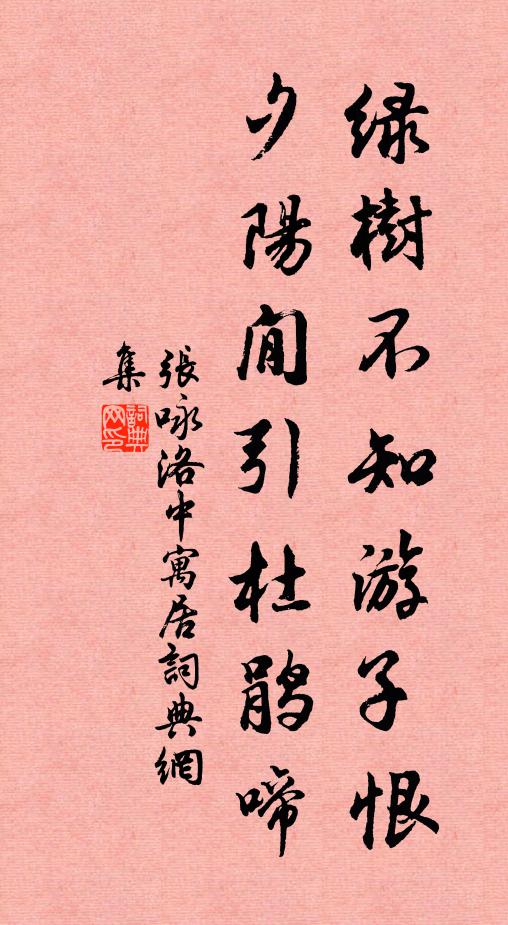 绿樹不知游子恨
夕陽閒引杜鹃啼
張咏洛中寓居詞典網
集
詞典
网印